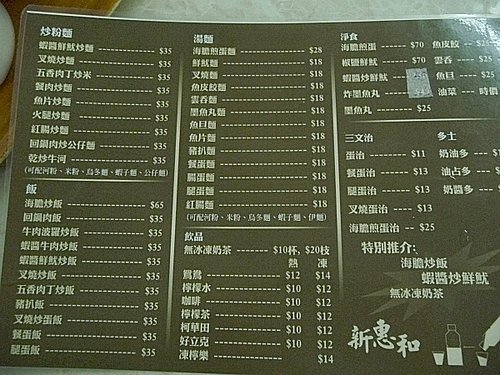 炒粉麵
蝦醬鮮魷炒麵 $35
叉燒炒麵 $35
五香肉丁炒米 $35
餐肉炒麵 $35
魚片炒麵 $35
火腿炒麵 $35
紅腸炒麵 $35
回鍋肉炒公仔麵 $35
乾炒牛河 $35
(可配河粉、米粉、烏冬麵、蝦子麵、公仔麵)
飯
海膽炒飯 $65
回鍋肉飯 $35
牛肉菠蘿炒飯 $35
蝦醬牛肉炒飯 $35
蝦醬鮮魷炒飯 $35
叉燒炒飯 $35
五香肉丁炒飯 $35
豬扒飯 $35
叉燒炒蛋飯 $35
餐蛋飯 $35
腿蛋飯 $35
湯麵
海膽煎蛋麵 $28
鮮魷麵 $18
叉燒麵 $18
魚皮餃麵 $18
雲吞麵 $18
墨魚丸麵 $18
魚旦麵 $18
魚片麵 $18
豬扒麵 $18
餐蛋麵 $18
腸蛋麵 $18
腿蛋麵 $18
紅腸麵 $18
(可配河粉、米粉、烏冬麵、蝦子麵、伊麵)
飲品
無冰凍奶茶 $10杯, $20枝
熱 凍
鴛鴦 $12 $14
檸檬水 $10 $12
咖啡 $10 $12
檸檬茶 $10 $12
柯華田 $10 $12
好立克 $10 $12
凍檸樂 $14
淨食
海膽煎蛋 $70 魚皮餃 $25
椒鹽鮮魷 $70 雲吞 $25
蝦醬炒鮮魷 魚旦 $25
炸墨魚丸 油菜 時價
墨魚丸 $25
三文治 多士
蛋治 $11 奶油多
餐蛋治 $13 油占多
腿蛋治 $13 奶醬多
叉燒蛋治 $13
海膽煎蛋治 $25
特別推介:
海膽炒飯
蝦醬炒鮮魷
無冰凍奶茶
新惠和